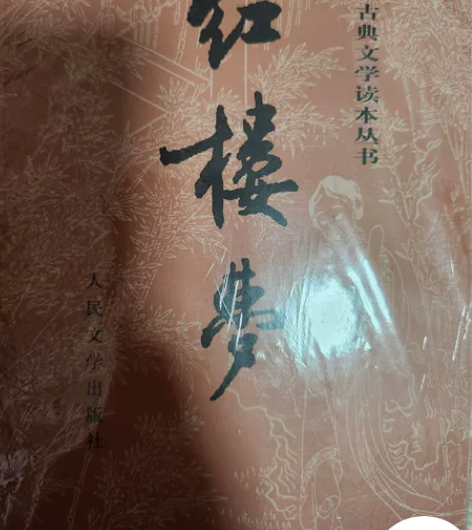 古典文学读本丛书
红楼梦
人民文学出版社